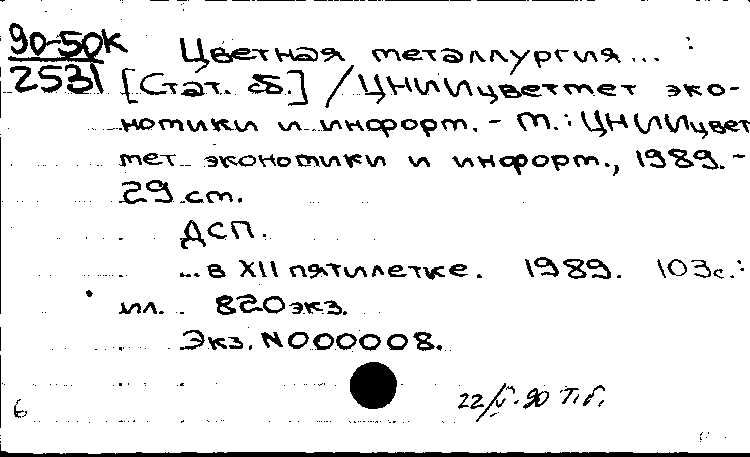 90-50К
2531
Цветная металлургия... :
[Стат. сб.] / ЦНИИцветмет эко-
номики и информ. - М.: ЦНИИцвет
мет экономики и информ., 1989. -
29 см.
ДСП.
...в XII пятилетке. 1989. 103с.:
ил. 820экз.
Экз. N000008.
22/V-90 Т.б.
6